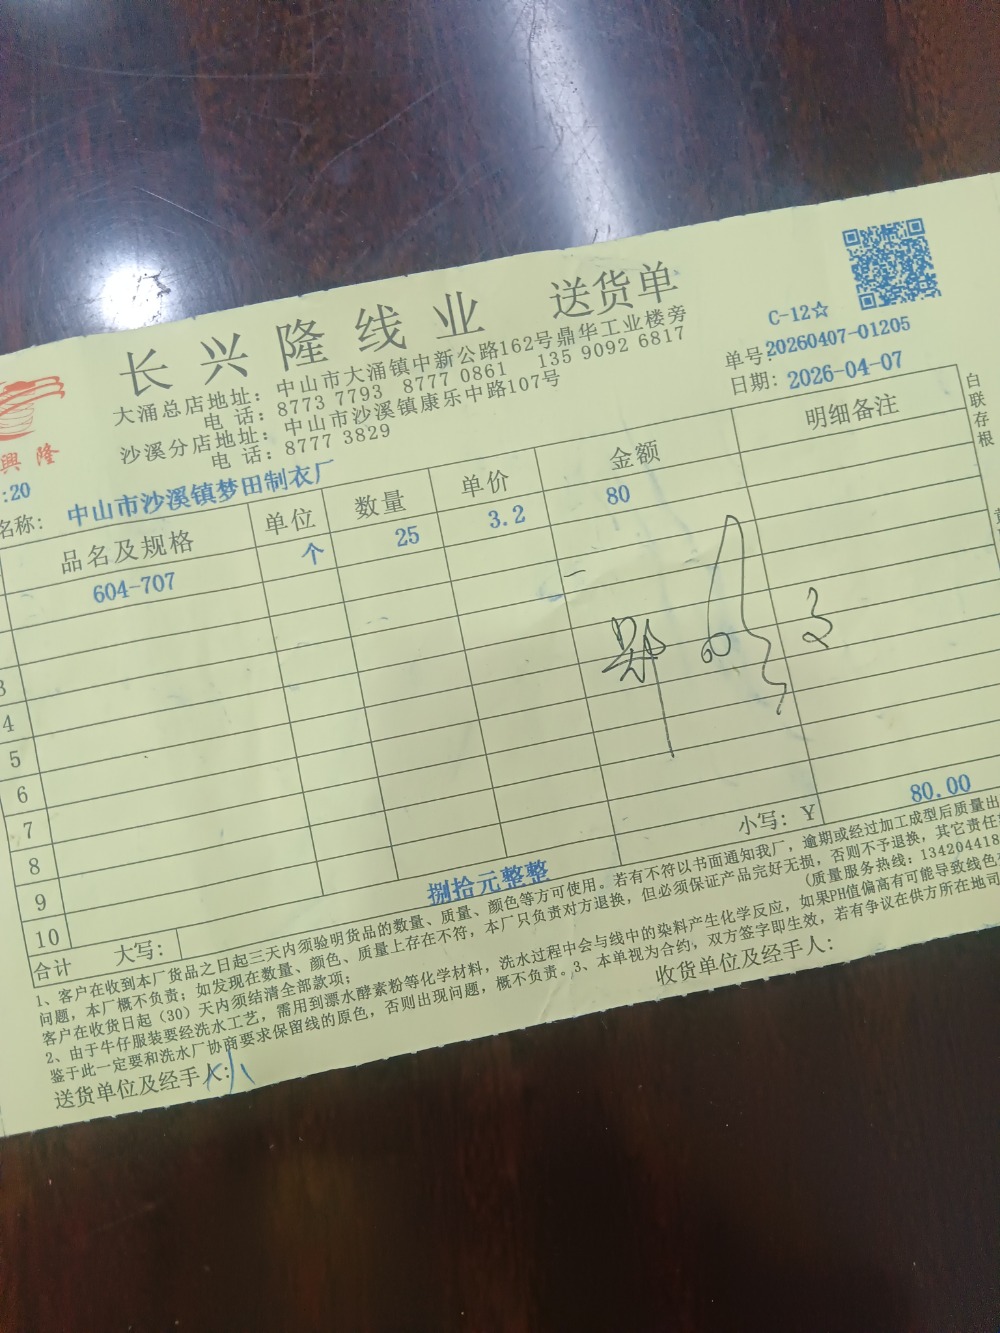 长兴隆线业 送货单
C-12☆
大涌总店地址：中山市大涌镇中新公路162号鼎华工业楼旁
电 话：8773 7793 8777 0861 135 9092 6817
沙溪分店地址：中山市沙溪镇康乐中路107号
电 话：8777 3829
单号：20260407-01205
日期：2026-04-07
興隆
:20
名称：中山市沙溪镇梦田制衣厂
品名及规格 单位 数量 单价 金额 明细备注
604-707 个 25 3.2 80
3
4
5
6
7
8
9
10
合计 大写：捌拾元整整 小写：Y 80.00
白联存根
1、客户在收到本厂货品之日起三天内须验明货品的数量、质量、颜色等方可使用。若有不符以书面通知我厂，逾期或经过加工成型后质量出
问题，本厂概不负责；如发现在数量、颜色、质量上存在不符，本厂只负责对方退换，但必须保证产品完好无损，否则不予退换，其它责任
客户在收货日起（30）天内须结清全部款项；
(质量服务热线：134204418
2、由于牛仔服装要经洗水工艺，需用到漂水酵素粉等化学材料，洗水过程中会与线中的染料产生化学反应，如果PH值偏高有可能导致线色
鉴于此一定要和洗水厂协商要求保留线的原色，否则出现问题，概不负责。3、本单视为合约，双方签字即生效，若有争议在供方所在地司
送货单位及经手人： 收货单位及经手人：